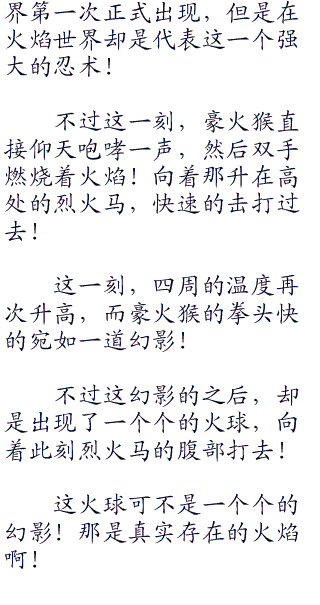 界第一次正式出现，但是在
火焰世界却是代表这一个强
大的忍术！
不过这一刻，豪火猴直
接仰天咆哮一声，然后双手
燃烧着火焰！向着那升在高
处的烈火马，快速的击打过
去！
这一刻，四周的温度再
次升高，而豪火猴的拳头快
的宛如一道幻影！
不过这幻影的之后，却
是出现了一个个的火球，向
着此刻烈火马的腹部打去！
这火球可不是一个个的
幻影！那是真实存在的火焰
啊！